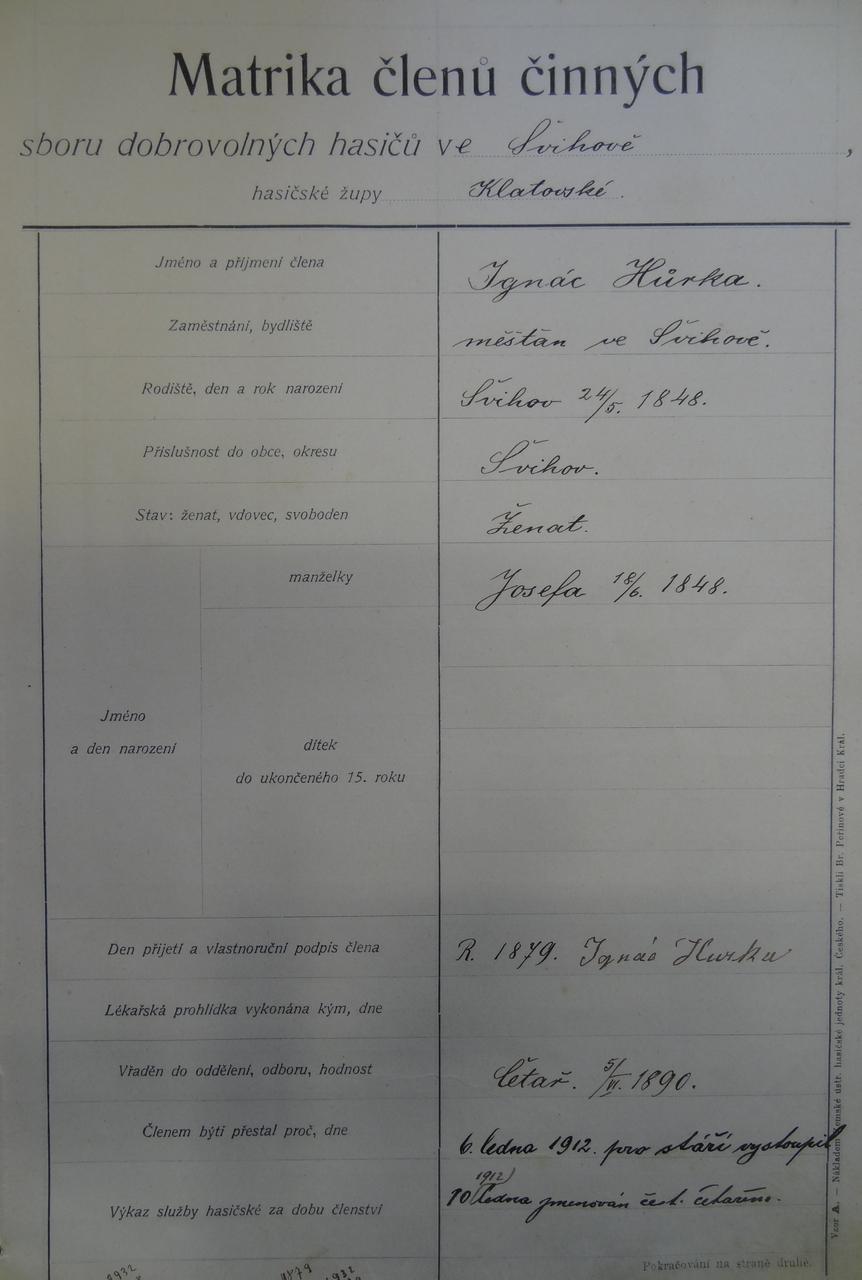 Matrika členů činných
sboru dobrovolných hasičů ve Švihově,
hasičské župy Klatovské.
Jméno a příjmení člena Ignác Hůrka.
Zaměstnání, bydliště měšťan ve Švihově.
Rodiště, den a rok narození Švihov 24/5. 1848.
Příslušnost do obce, okresu Švihov.
Stav: ženat, vdovec, svoboden Ženat.
manželky Josefa 18/6. 1848.
Jméno
a den narození
dítek
do ukončeného 15. roku
Den přijetí a vlastnoruční podpis člena R. 1879. Ignác Hurka
Lékařská prohlídka vykonána kým, dne
Vřaděn do oddělení, odboru, hodnost Četař. 5/VI. 1890.
Členem býti přestal proč, dne 6. ledna 1912. pro stáří vystoupil
1912
Výkaz služby hasičské za dobu členství 10 ledna jmenován čest. četařem.
1932 1879 1932
Pokračování na straně druhé.
Vzor A. — Nákladem zemské ústř. hasičské jednoty král. Českého. — Tiskli Br. Peřinové v Hradci Král.